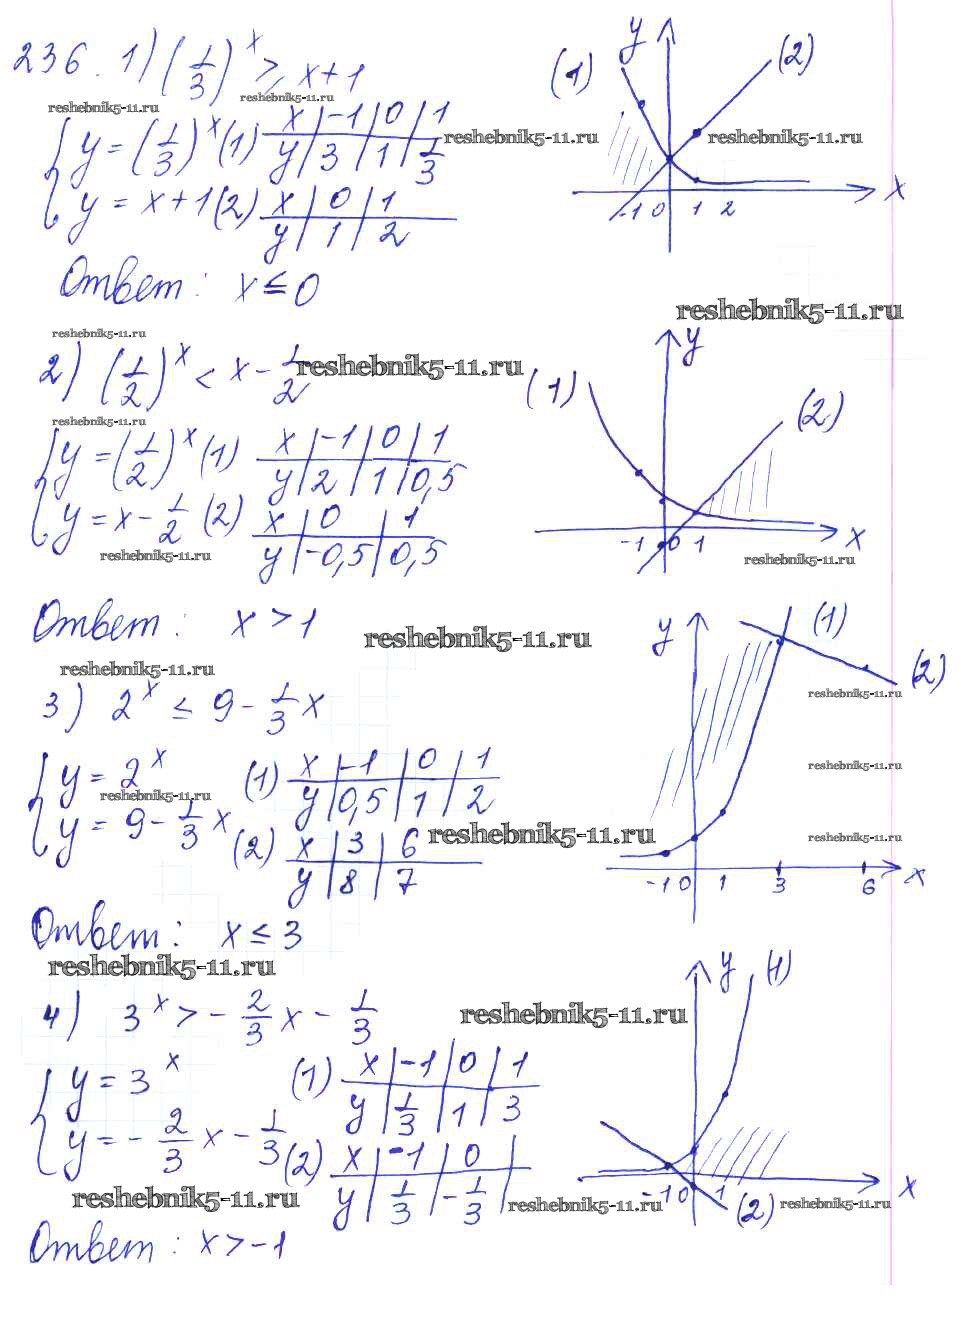 236. 1) (1/3)^x ≥ x+1
reshebnik5-11.ru reshebnik5-11.ru
{ y = (1/3)^x (1) x | -1 | 0 | 1
y | 3 | 1 | 1/3
reshebnik5-11.ru
y = x+1 (2) x | 0 | 1
y | 1 | 2
y (1) (2)
reshebnik5-11.ru
-1 0 1 2 x
Ответ: x ≤ 0
reshebnik5-11.ru
reshebnik5-11.ru
2) (1/2)^x < x - 1/2
reshebnik5-11.ru
reshebnik5-11.ru
{ y = (1/2)^x (1) x | -1 | 0 | 1
y | 2 | 1 | 0,5
y = x - 1/2 (2) x | 0 | 1
y | -0,5 | 0,5
reshebnik5-11.ru
y (1) (2)
-1 0 1 x
reshebnik5-11.ru
Ответ: x > 1
reshebnik5-11.ru
reshebnik5-11.ru
3) 2^x ≤ 9 - 1/3 x
{ y = 2^x (1) x | -1 | 0 | 1
y | 0,5 | 1 | 2
reshebnik5-11.ru
y = 9 - 1/3 x (2) x | 3 | 6
y | 8 | 7
reshebnik5-11.ru
y (1) (2)
reshebnik5-11.ru
reshebnik5-11.ru
reshebnik5-11.ru
-1 0 1 3 6 x
Ответ: x ≤ 3
reshebnik5-11.ru
4) 3^x > - 2/3 x - 1/3
reshebnik5-11.ru
{ y = 3^x (1) x | -1 | 0 | 1
y | 1/3 | 1 | 3
y = - 2/3 x - 1/3 (2) x | -1 | 0 |
y | 1/3 | -1/3
reshebnik5-11.ru
y (1)
-1 0 1 x
(2)
reshebnik5-11.ru reshebnik5-11.ru
Ответ: x > -1